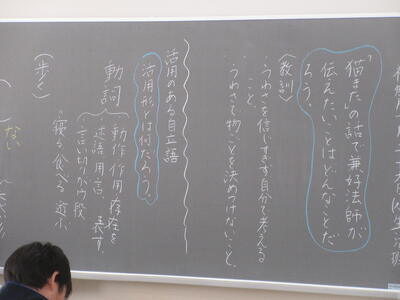 「猫また」の話で兼好法師が
伝えたいことはどんなことだ
ろう。
〈教訓〉
うわさを信じすぎず自分で考える
こと。
うわさで物ごとを決めつけないこと。
活用のある自立語
活用形とは何だろう。
動詞
動作・作用・存在を
述語 用言 表す。
言い切りがウ段
寝る 食べる 遊ぶ
(歩く)
ない